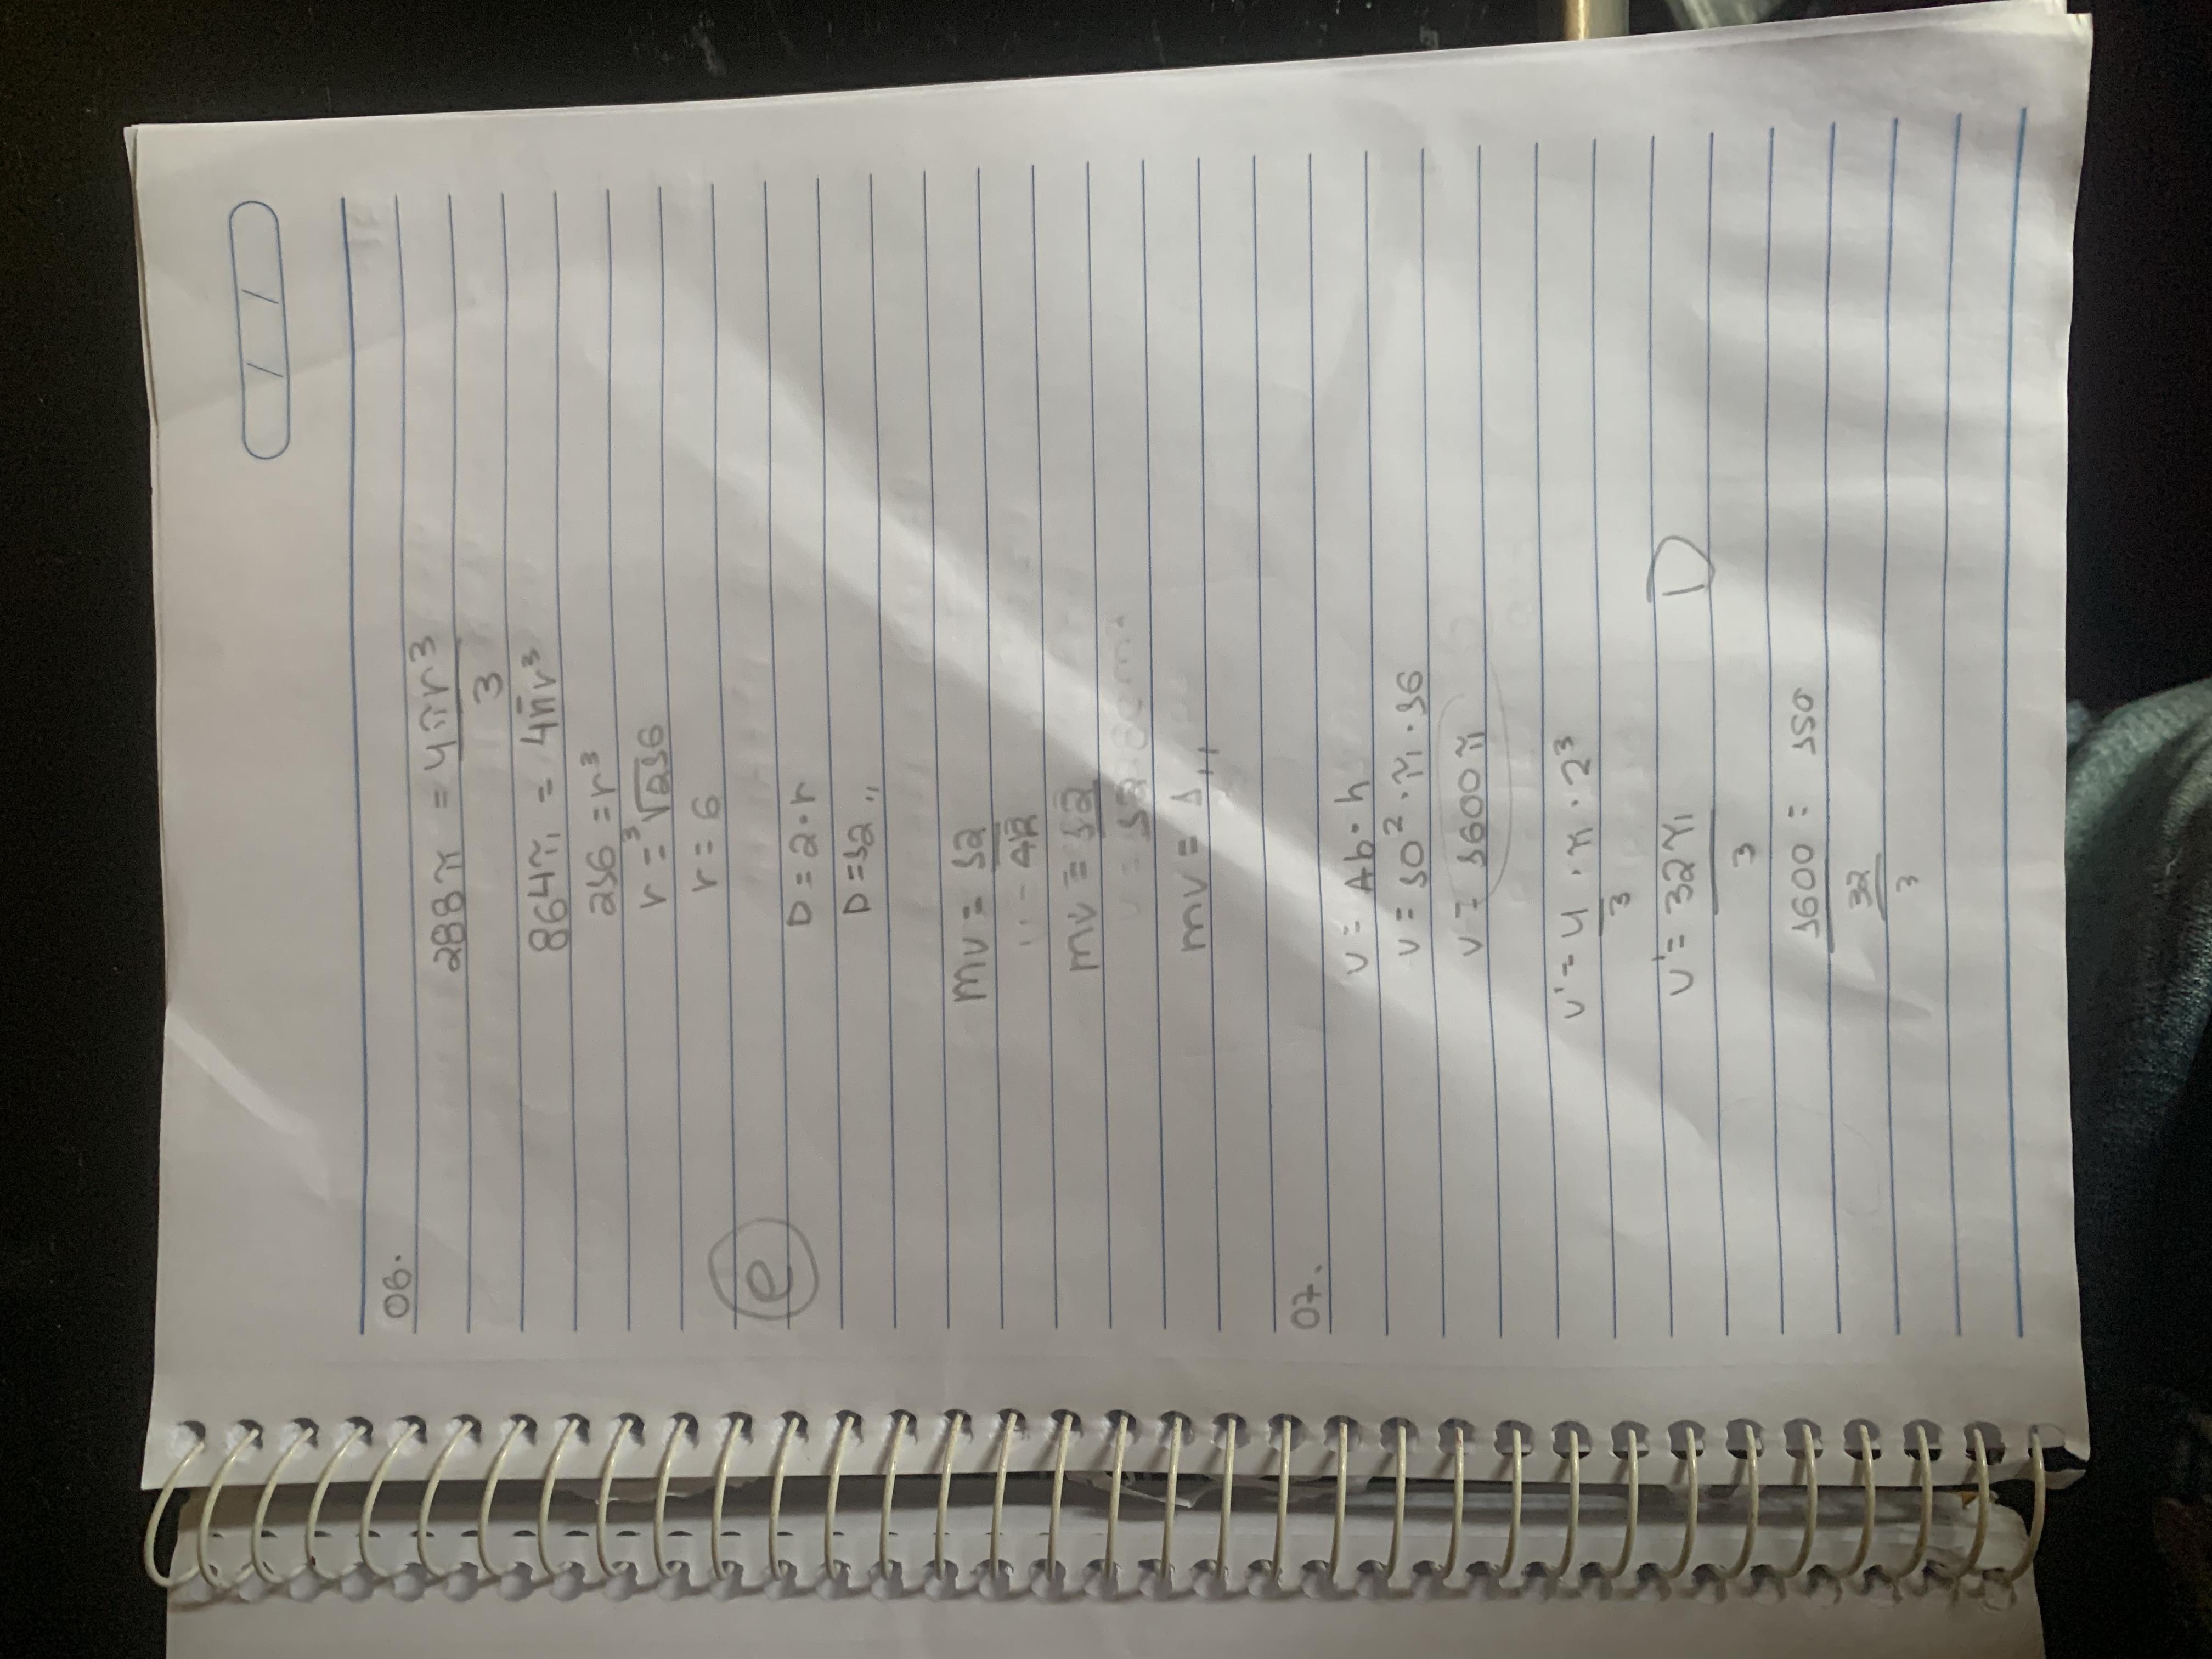 06.
288π = 4πr³/3
864π = 4πr³
216 = r³
r = ³√216
r = 6
e
D = 2·r
D = 12 ,,
mv = 12
mv = 12/12
mv = 1 ,,
07.
V = Ab·h
V = 10²·π·16
V = 1600π
V' = 4/3 · π · 2³
V' = 32π/3
D
1600/(32/3) = 150